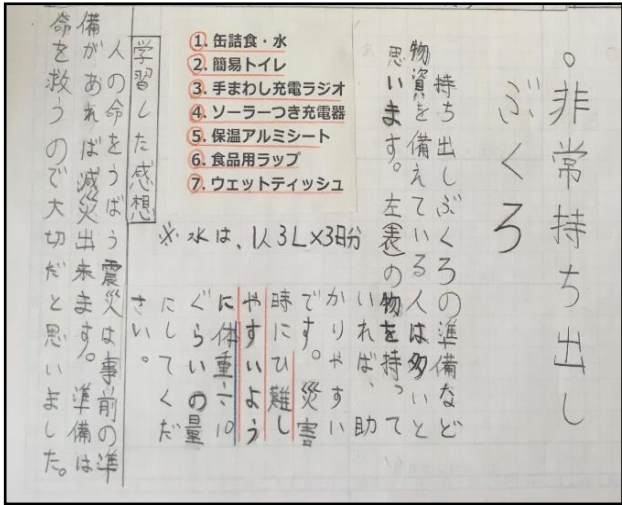 。非常持ち出し
ぶくろ
持ち出しぶくろの準備など
物資を備えている人は多いと
思います。左(表)の物を持って
いれば、助
かりやすい
です。災害
時にひ難し
やすいよう
に体重÷10
ぐらいの量
にしてくだ
さい。
1. 缶詰食・水
2. 簡易トイレ
3. 手まわし充電ラジオ
4. ソーラーつき充電器
5. 保温アルミシート
6. 食品用ラップ
7. ウェットティッシュ
※水は、1人3L×3日分
学習した感想
人の命をうばう震災は事前の準
備があれば減災出来ます。準備は
命を救うので大切だと思いました。